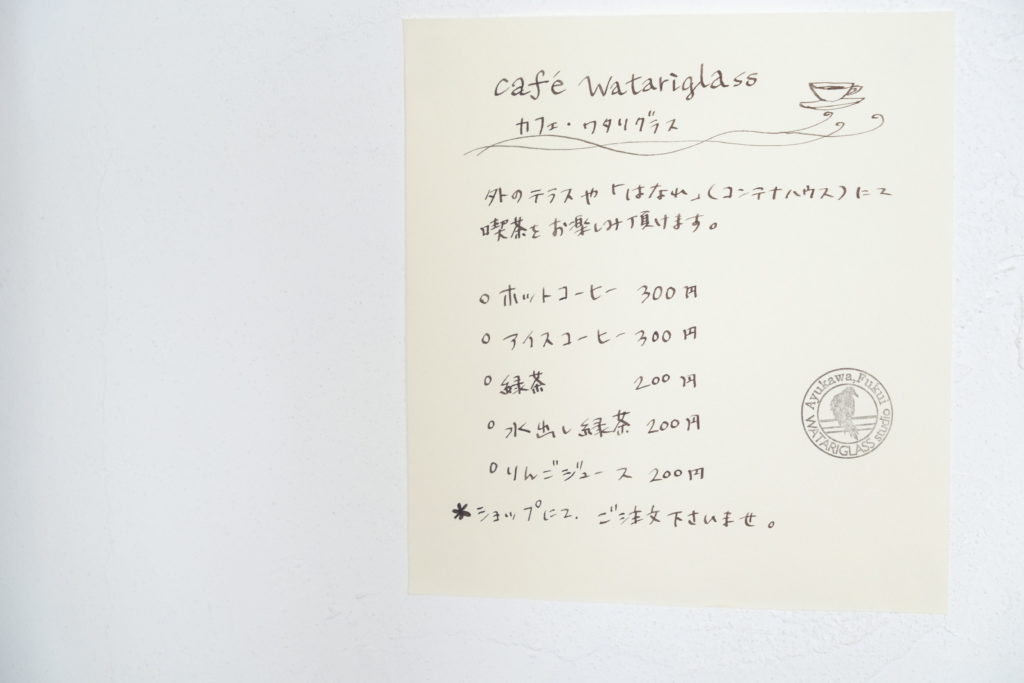 café Watariglass
カフェ・ワタリグラス
外のテラスや「はなれ」(コンテナハウス)にて
喫茶をお楽しみ頂けます。
○ ホットコーヒー 300円
○ アイスコーヒー 300円
○ 緑茶 200円
○ 水出し緑茶 200円
○ りんごジュース 200円
*ショップにて、ご注文下さいませ。
Ayukawa, Fukui
WATARIGLASS studio